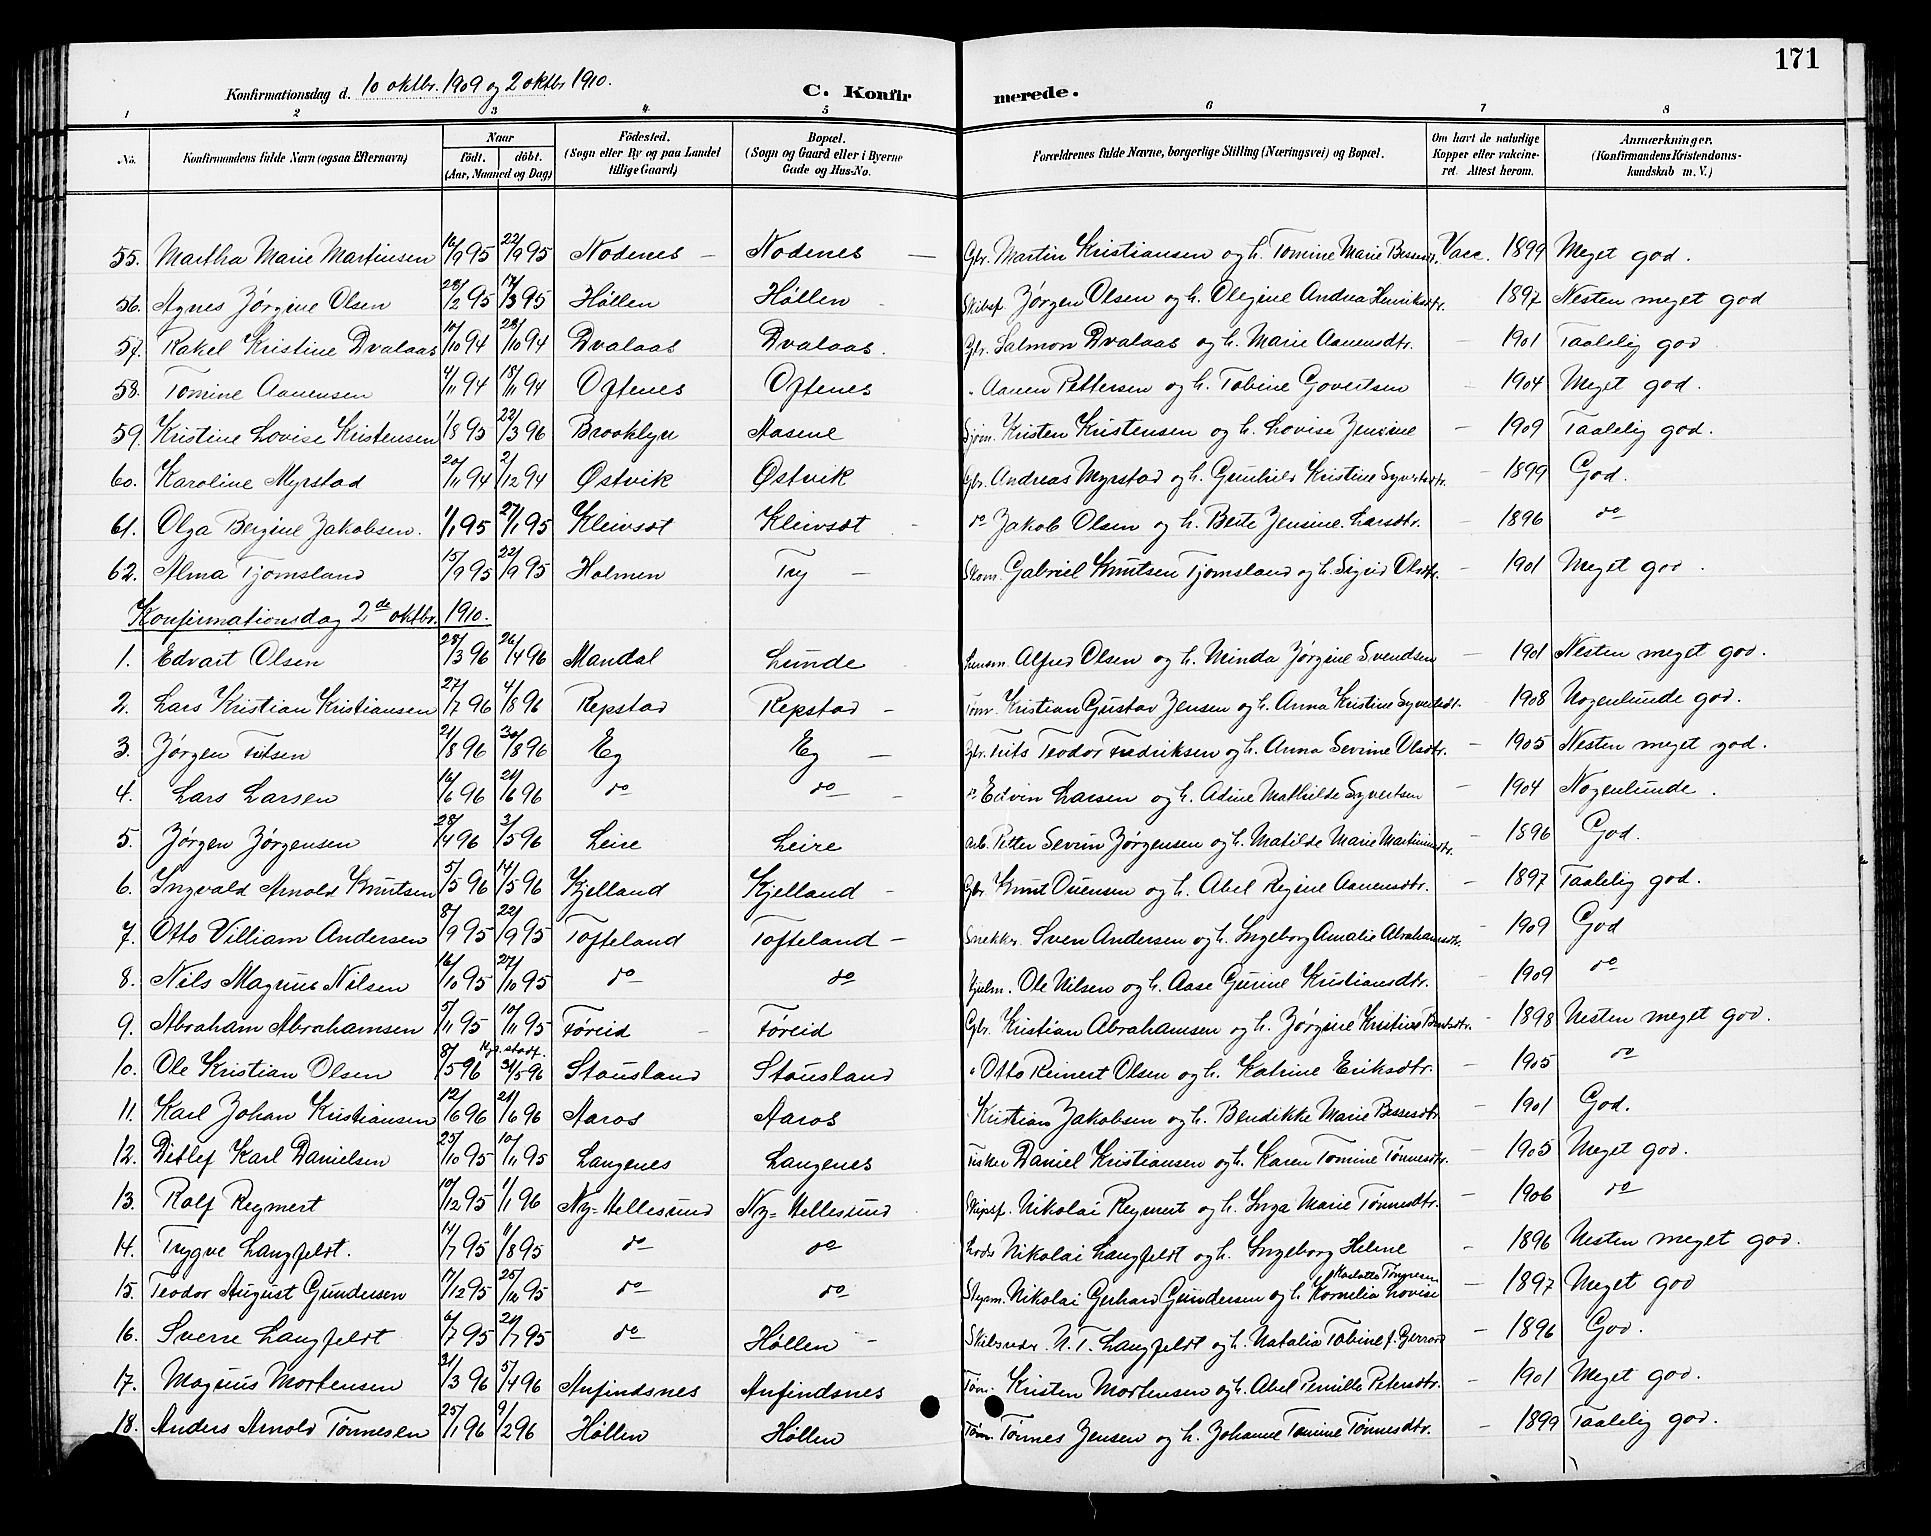 171
Konfirmationsdag d. 10 oktbr. 1909 og 2 oktbr 1910. C. Konfirmerede.
1 2 3 4 5 6 7 8
No. Konfirmandens fulde Navn (ogsaa Efternavn) Naar födt. döbt. (Aar, Maaned og Dag) Födested. (Sogn eller By og paa Landet tillige Gaard) Bopæl. (Sogn og Gaard eller i Byerne Gade og Hus-No. Forældrenes fulde Navne, borgerlige Stilling (Næringsvei) og Bopæl. Om havt de naturlige Kopper eller vakcineret. Attest herom. Anmærkninger. (Konfirmandens Kristendomskundskab m. V.)
55. Martha Marie Martinsen 16/9 95 22/9 95 Nodenes – Nodenes – Gbr. Martin Kristiansen og h. Tomine Marie Bessesdtr. Vacc. 1899 Meget god.
56. Agnes Jørgine Olsen 28/2 95 17/3 95 Høllen Høllen Skibsf. Jørgen Olsen og h. Olegine Andrea Henriksdtr. 1897 Nesten meget god
57. Rakel Kristine Dvalaas 10/10 94 28/10 94 Dvalaas Dvalaas. Gbr. Salmon Dvalaas og h. Marie Aanensdtr. – 1901 Taalelig god
58. Tomine Aanensen 4/11 94 18/11 94 Oftenes Oftenes " Aanen Pettersen og h. Tobine Govertsen – 1904 Meget god.
59. Kristine Lovise Kristensen 1/8 95 22/3 96 Brooklyn Aasene Sjøm. Kristen Kristensen og h. Lovise Jensine – 1909 Taalelig god.
60. Karoline Myrstad 20/11 94 2/12 94 Østvik Østvik Gbr. Andreas Myrstad og h. Gunhild Kristine Syvertsdtr. – 1899 God.
61. Olga Bergine Jakobsen. 1/1 95 27/1 95 Kleivset Kleivset do Jakob Olsen og h. Berte Jensine Larsdtr. – 1896 do
62. Alma Tjomsland 15/9 95 22/9 95 Holmen Try – Skom. Gabriel Knutsen Tjomsland og h. Sigrid Olsdtr. – 1901 Meget god.
Konfirmationsdag 2de oktbr. 1910.
1. Edvart Olsen 28/3 96 26/4 96 Mandal Lunde Lensm. Alfred Olsen og h. Minda Jørgine Svendsen – 1901 Nesten meget god.
2. Lars Kristian Kristiansen 27/7 96 4/8 96 Repstad Repstad – Tøm. Kristian Gustav Jensen og h. Anna Kristine Syvertsdt. – 1908 Nogenlunde god.
3. Jørgen Fritsen 21/8 96 30/8 96 Eg Eg – Gbr. Frits Teodor Fredriksen og h. Anna Sevrine Olsdtr. – 1905 Nesten meget god.
4. Lars Larsen 16/6 96 21/6 96 do do – do Edvin Larsen og h. Adine Mathilde Syvertsen – 1904 Nogenlunde.
5. Jørgen Jørgensen 28/4 96 3/5 96 Leire Leire arb. Petter Severin Jørgensen og h. Matilde Marie Martiniusdtr. – 1896 God.
6. Ingvald Arnold Knutsen 5/5 96 14/5 96 Kjelland Kjelland – Gbr. Knut Ouensen og h. Abel Regine Aanensdtr. – 1897 Taalelig god.
7. Otto Villiam Andersen 8/9 95 22/9 95 Tofteland Tofteland – Snekker. Sven Andersen og h. Ingeborg Amalie Abrahamsdtr. – 1909 God
8. Nils Magnus Nilsen 16/10 95 27/10 95 do do Ole Nilsen og h. Aase Gurine Kristiansdtr. – 1909 do
9. Abraham Abrahamsen 5/11 95 10/11 95 Føreid – Føreid Gbr. Kristian Abrahamsen og h. Jørgine Kristine – 1898 Nesten meget god.
10. Ole Kristian Olsen 8/5 96 Hj. stadf. 31/5 96 Stausland Stausland " Otto Reinert Olsen og h. Katrine Eriksdtr. – 1905 do
11. Karl Johan Kristiansen 12/6 96 21/6 96 Aaros Aaros Kristian Jakobsen og h. Bendikke Marie Bessesdtr. – 1901 God.
12. Ditlef Karl Danielsen 25/10 95 10/11 95 Langenes Langenes Fisker Daniel Kristiansen og h. Karen Tomine Tønnesdtr. – 1905 Meget god.
13. Rolf Reymert 10/12 95 1/1 96 Ny=Hellesund Ny=Hellesund Skipsf. Nikolai Reymert og h. Inga Marie Tønnesdtr. – 1906 do
14. Trygve Langfeldt. 14/7 95 11/8 95 do do Lods Nikolai Langfeldt og h. Ingeborg Helene – 1896 Nesten meget god.
15. Teodor August Gundersen 17/12 95 do do Styrm. Nikolai Gerhard Gundersen og h. Kornelia Lovise Karlotte – 1897 Meget god
16. Sverre Langfeldt 6/7 95 21/7 95 do Høllen – Skibsreder. N. T. Langfeldt og h. Natalia Tobine f. – 1896 God.
17. Magnus Mortensen 31/3 96 5/4 96 Anfindsnes Anfindsnes Tøm. Kristen Mortensen og h. Abel Pernille Petersdtr. – 1901 Meget god.
18. Anders Arnold Tønnesen 25/1 96 9/2 96 Høllen Høllen Tøm. Tønnes Jensen og h. Johanne Tomine Tønnesdtr. – 1899 Taalelig god.